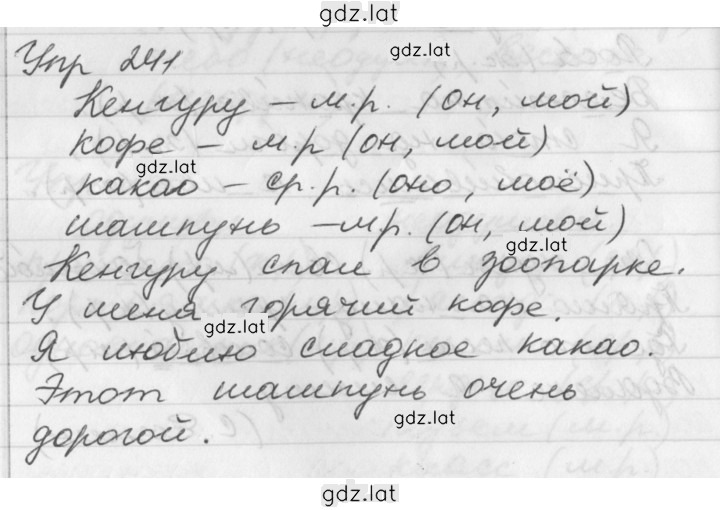 gdz.lat
Упр 241
gdz.lat
Кенгуру – м.р. (он, мой)
кофе – м.р (он, мой)
gdz.lat
какао – ср.р. (оно, моё)
шампунь – м р. (он, мой)
gdz.lat
Кенгуру спал в зоопарке.
У меня горячий кофе.
gdz.lat
Я люблю сладкое какао.
Этот шампунь очень
gdz.lat
дорогой.
gdz.lat